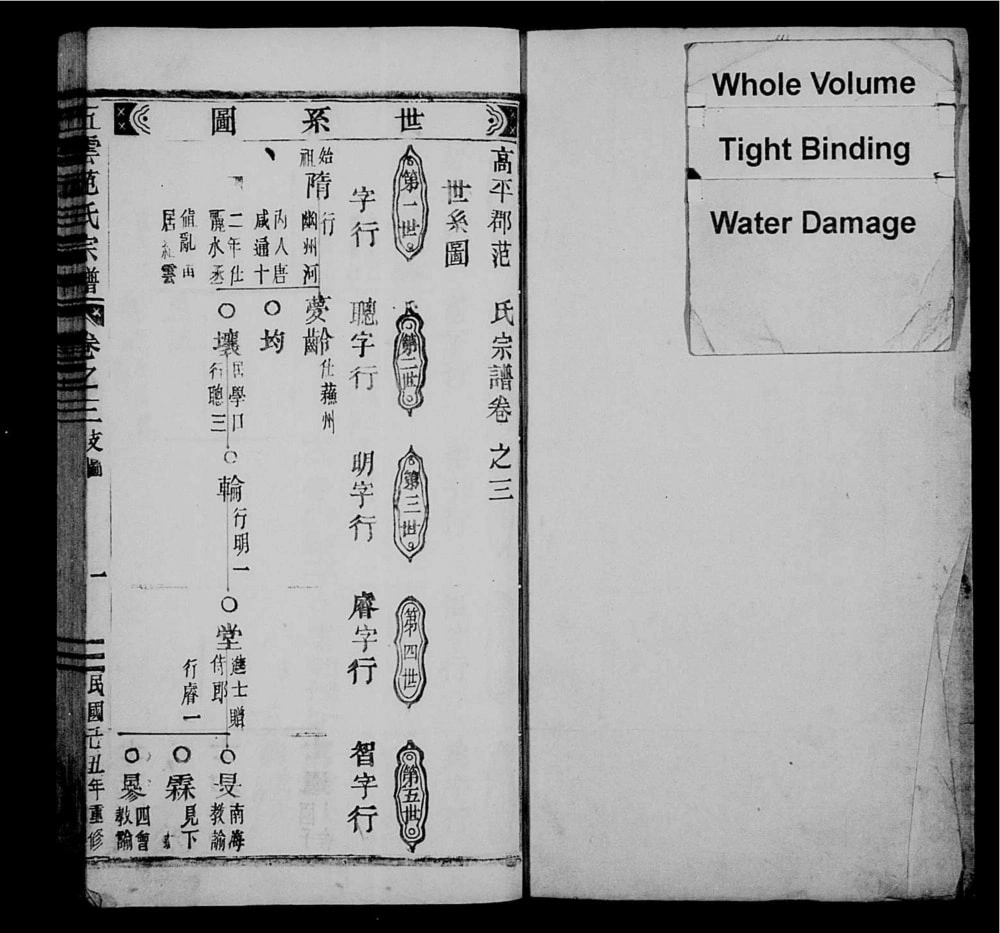 世系圖
高平郡范氏宗譜卷之三
世系圖
第一世
第二世
第三世
第四世
第五世
字行
聰字行
明字行
睿字行
智字行
始祖
隋
行
幽州河
內人唐
咸通十
二年仕
麗水丞
亂
居 雲
夢齡
仕蘇州
均
壤
學
行聰三
輪
行明一
堂
進士贈
侍郎
行睿一
旻
南海
教諭
霖
見下
四會
教諭
五雲范氏宗譜
卷之三
支圖
一
民國己丑年重修
Whole Volume
Tight Binding
Water Damage